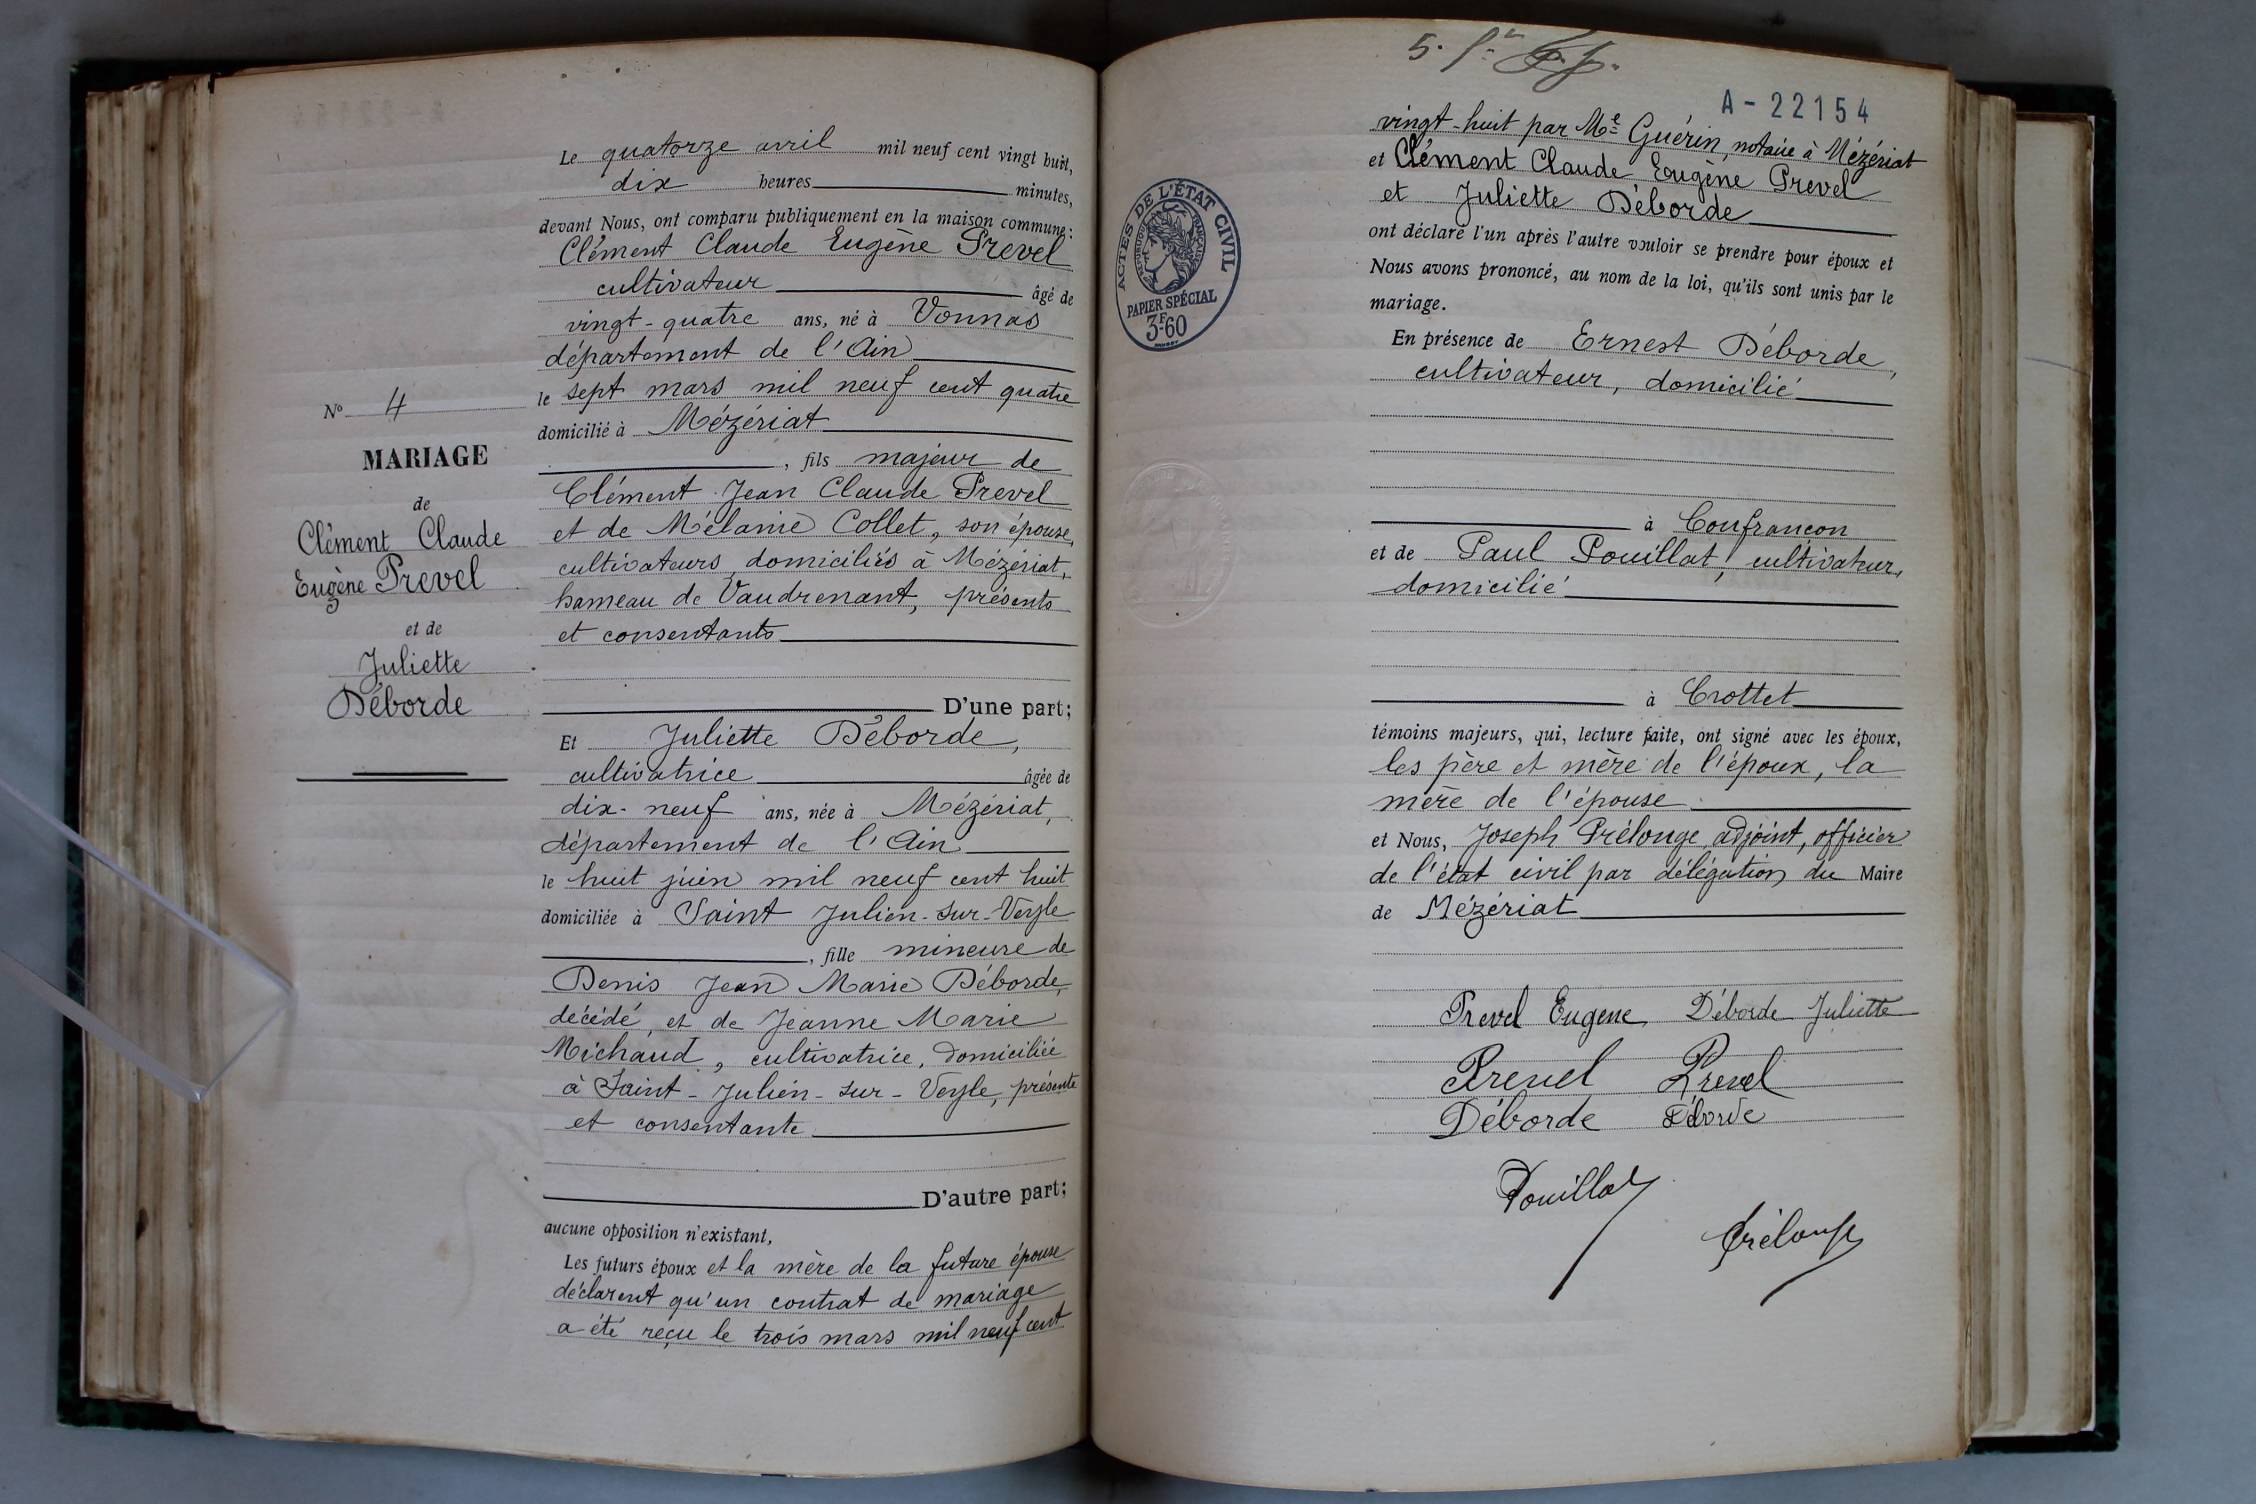 Le quatorze avril mil neuf cent vingt huit,
dix heures minutes,
devant Nous, ont comparu publiquement en la maison commune:
Clément Claude Eugène Prevel
cultivateur âgé de
vingt-quatre ans, né à Vonnas
département de l'Ain
le sept mars mil neuf cent quatre
domicilié à Mézériat
, fils majeur de
Clément Jean Claude Prevel
et de Mélanie Collet, son épouse,
cultivateurs, domiciliés à Mézériat,
hameau de Vaudrenant, présents
et consentants
D'une part;
Nº 4
MARIAGE
de
Clément Claude
Eugène Prevel
et de
Juliette
Déborde
Et Juliette Déborde,
cultivatrice âgée de
dix-neuf ans, née à Mézériat,
département de l'Ain
le huit juin mil neuf cent huit
domiciliée à Saint Julien-sur-Veyle
, fille mineure de
Denis Jean Marie Déborde,
décédé, et de Jeanne Marie
Michaud, cultivatrice, domiciliée
à Saint-Julien-sur-Veyle, présente
et consentante
D'autre part;
aucune opposition n'existant,
Les futurs époux et la mère de la future épouse
déclarent qu'un contrat de mariage
a été reçu le trois mars mil neuf cent
A-22154
vingt-huit par Me Guérin, notaire à Mézériat
et Clément Claude Eugène Prevel
et Juliette Déborde
ont déclaré l'un après l'autre vouloir se prendre pour époux et
Nous avons prononcé, au nom de la loi, qu'ils sont unis par le
mariage.
ACTES DE L'ÉTAT CIVIL
RÉPUBLIQUE FRANÇAISE
PAPIER SPÉCIAL
3F60
En présence de Ernest Déborde,
cultivateur, domicilié
à Confrançon
et de Paul Pouillat, cultivateur,
domicilié
à Crottet
témoins majeurs, qui, lecture faite, ont signé avec les époux,
les père et mère de l'époux, la
mère de l'épouse
et Nous, Joseph Prélonge, adjoint, officier
de l'état civil par délégation du Maire
de Mézériat
Prevel Eugene Déborde Juliette
Prevel Prevel
Déborde Déborde
Pouillat
Prélonge